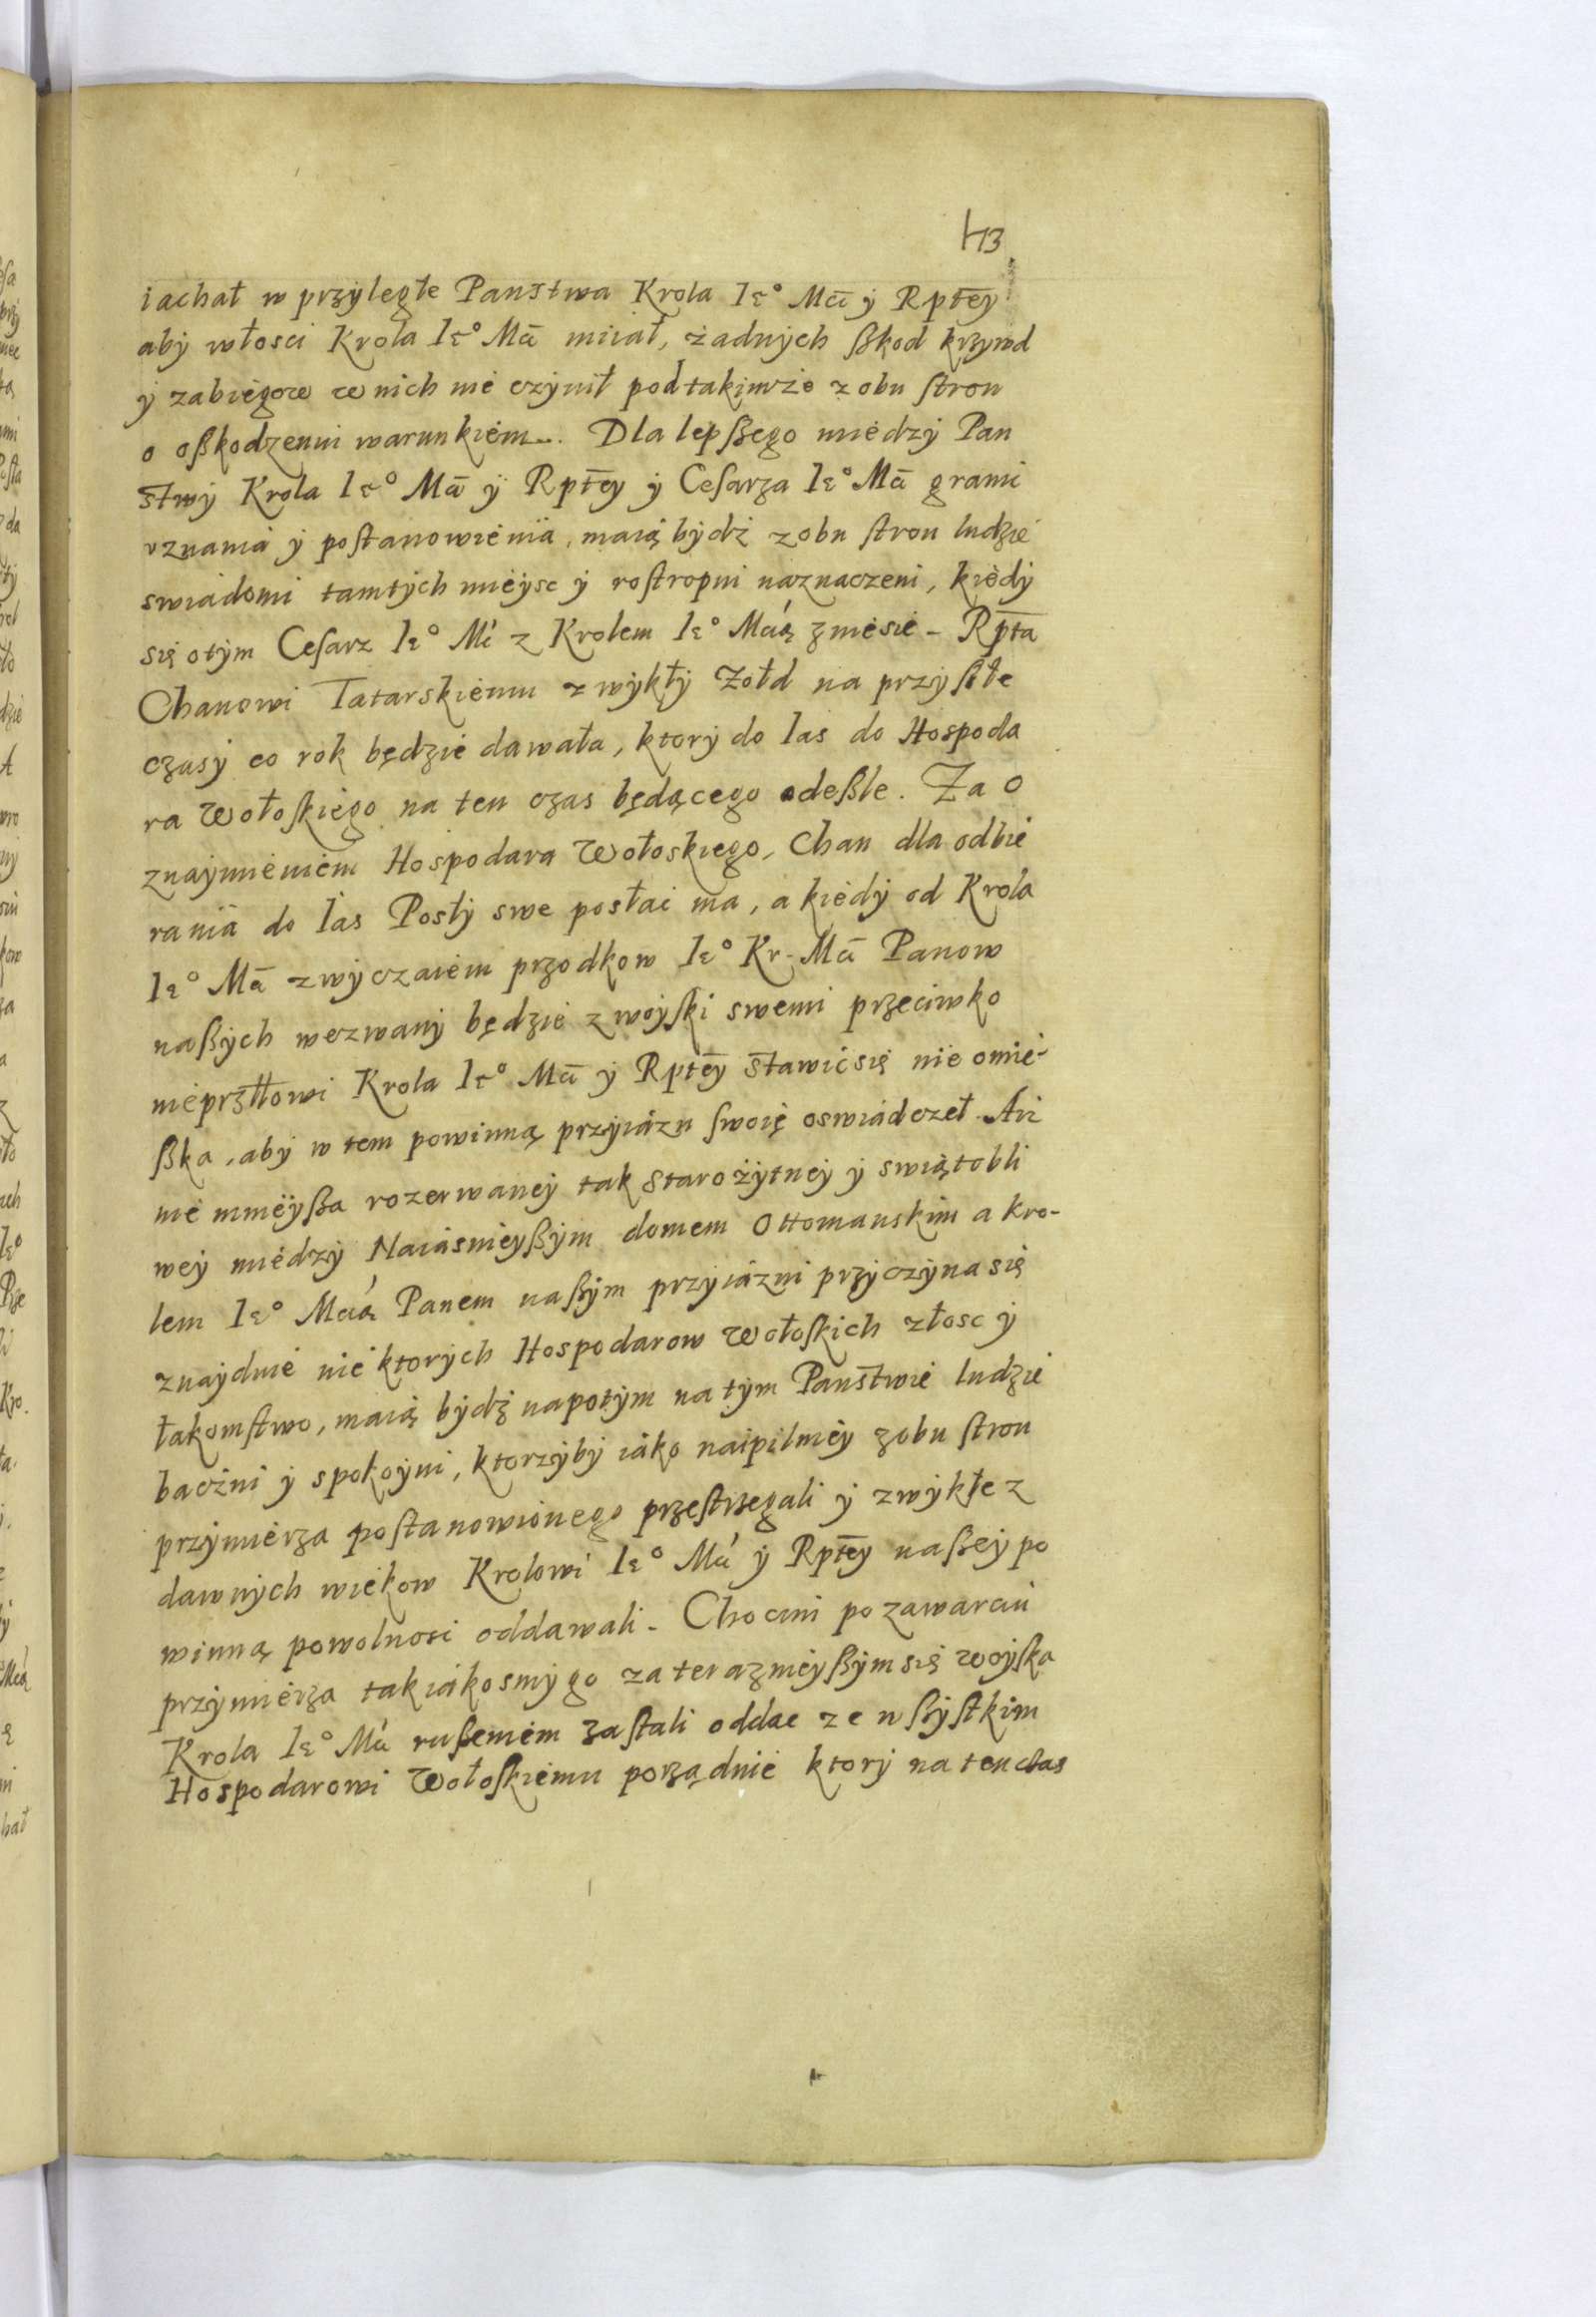 113
iachał w przyległe Panstwa Krola Ie° Mći y Rptey
aby włosci Krola Ie° Mći miiał, żadnych ßkod krzywd
y zabiegow w nich nie czynił pod takimże z obu stron
o oßkodzeniu warunkiem. Dla lepßego miedzy Pan
stwy Krola Ie° Mći y Rptey y Cesarza Ie° Mći grani
vznania y postanowienia, maią bydź z obu stron ludzie
swiadomi tamtych mieysc y rostropni naznaczeni, kiedy
się o tym Cesarz Ie° Mć z Krolem Ie° Mćią zniesie - Rpta
Chanowi Tatarskiemu zwykły Zołd na przyßłe
czasy co rok będzie dawała, ktory do Ias do Hospoda
ra Wołoskiego na ten czas będącego odeßle. Za o
znaymieniem Hospodara Wołoskiego, Chan dla odbie
rania do Ias Posły swe posłać ma, a kiedy od Krola
Ie° Mći zwyczaiem przodkow Ie° Kr. Mći Panow
naßych wezwany będzie z woyski swemi przeciwko
nieprzłłowi Krola Ie° Mći y Rptey stawić się nie omie-
ßka, aby w tem powinną przyiazn swoię oswiadczeł. Aż
nie mnieyßa rozerwaney tak starożytney y swiątobli
wey miedzy Naiasnieyßym domem Ottomanskim a Kro-
lem Ie° Mćią Panem naßym przyiazni przyczyna się
znayduie niektorych Hospodarow Wołoskich złosc y
łakomstwo, maią bydź napotym na tym Panstwie ludzie
baczni y spokoyni, ktorzyby iako naipilniey z obu stron
przymierza postanowionego przestrzegali y zwykłe z
dawnych wiekow Krolowi Ie° Mći y Rptey naßey po
winną powolnosc oddawali - Chocim po zawarciu
przymierza tak iakosmy go za terazneyßym się woyska
Krola Ie° Mći rußeniem zastali oddac ze wßystkim
Hospodarowi Wołoskiemu porządnie ktory na ten czas